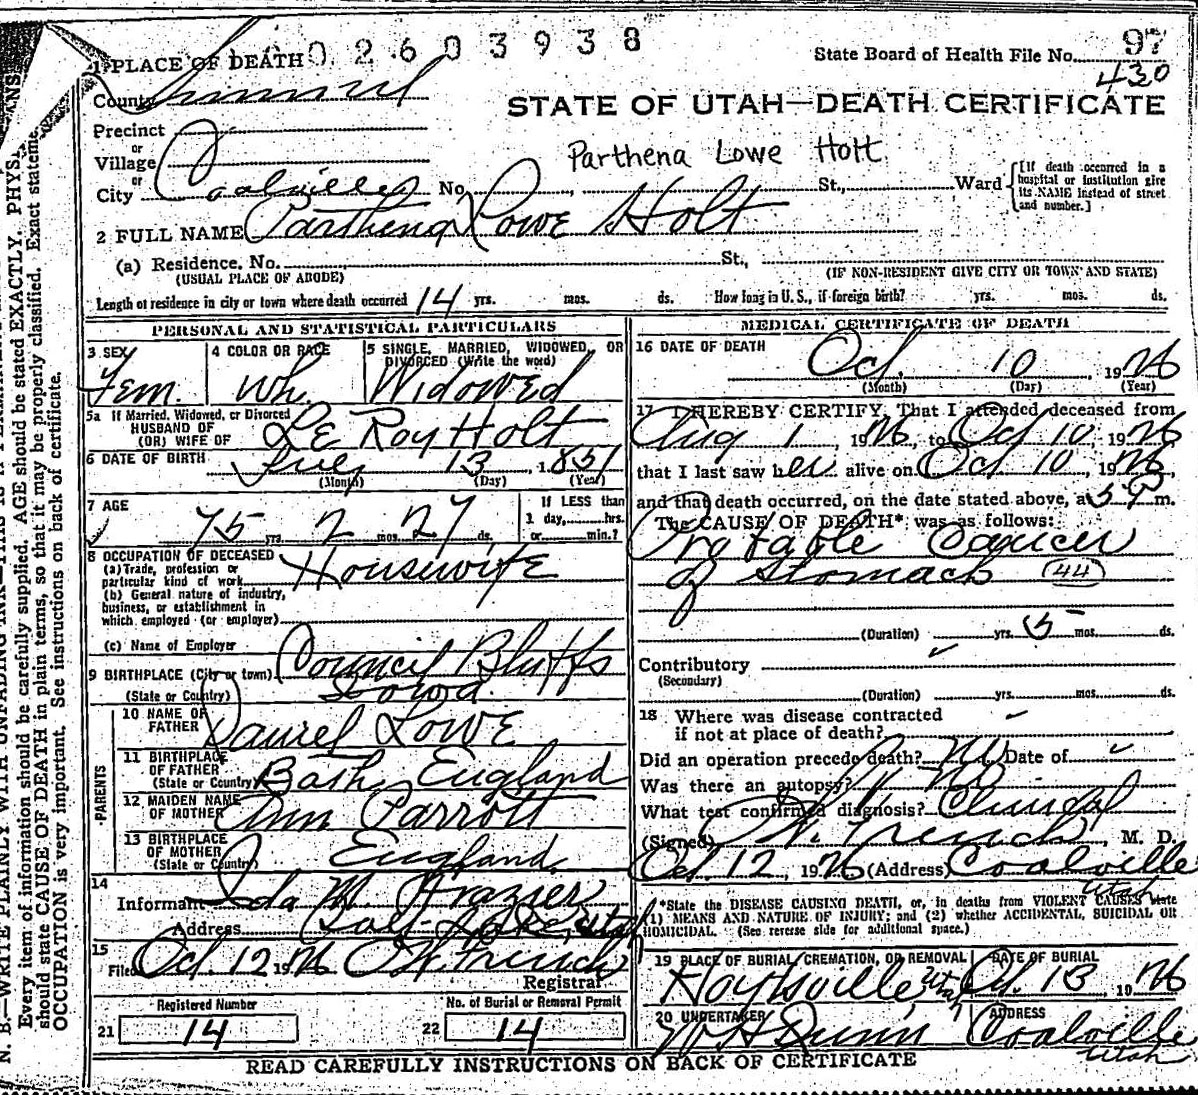 0 2 6 0 3 9 3 8
1 PLACE OF DEATH
State Board of Health File No. 97
430
County Summit
STATE OF UTAH—DEATH CERTIFICATE
Precinct
or
Village
Parthena Lowe Holt
or
City Coalville No. , St., Ward
[If death occurred in a hospital or institution give its NAME instead of street and number.]
2 FULL NAME Parthena Lowe Holt
(a) Residence. No. St.,
(USUAL PLACE OF ABODE) (IF NON-RESIDENT GIVE CITY OR TOWN AND STATE)
Length of residence in city or town where death occurred 14 yrs. mos. ds. How long in U. S., if foreign birth? yrs. mos. ds.
PERSONAL AND STATISTICAL PARTICULARS
3 SEX
Fem.
4 COLOR OR RACE
Wh.
5 SINGLE, MARRIED, WIDOWED, OR DIVORCED (Write the word)
Widowed
5a If Married, Widowed, or Divorced
HUSBAND OF
(OR) WIFE OF Le Roy Holt
6 DATE OF BIRTH July 13, 1851
(Month) (Day) (Year)
7 AGE
75 yrs. 2 mos. 27 ds.
If LESS than
1 day, hrs.
or min.?
8 OCCUPATION OF DECEASED
(a) Trade, profession or
particular kind of work Housewife
(b) General nature of industry,
business, or establishment in
which employed (or employer)
(c) Name of Employer
9 BIRTHPLACE (City or town) Council Bluffs
(State or Country) Iowa
PARENTS
10 NAME OF
FATHER Laurel Lowe
11 BIRTHPLACE
OF FATHER
(State or Country) Bath, England
12 MAIDEN NAME
OF MOTHER Ann Parrott
13 BIRTHPLACE
OF MOTHER
(State or Country) England
14
Informant Ida M. Frazier
Address Salt Lake, Utah
15
Filed Oct. 12 1926
Registrar
Registered Number
21 14
No. of Burial or Removal Permit
22 14
MEDICAL CERTIFICATE OF DEATH
16 DATE OF DEATH
Oct. 10, 1926
(Month) (Day) (Year)
17 I HEREBY CERTIFY, That I attended deceased from
Aug 1, 1926, to Oct 10, 1926
that I last saw her alive on Oct 10, 1926
and that death occurred, on the date stated above, at 5 P m.
The CAUSE OF DEATH* was as follows:
Probable Cancer
of Stomach 44
(Duration) yrs. 5 mos. ds.
Contributory
(Secondary)
(Duration) yrs. mos. ds.
18 Where was disease contracted
if not at place of death?
Did an operation precede death? No Date of
Was there an autopsy? No
What test confirmed diagnosis? Clinical
(Signed) French, M. D.
Oct. 12, 1926 (Address) Coalville
Utah
*State the DISEASE CAUSING DEATH, or, in deaths from VIOLENT CAUSES state
(1) MEANS AND NATURE OF INJURY; and (2) whether ACCIDENTAL, SUICIDAL OR
HOMICIDAL. (See reverse side for additional space.)
19 PLACE OF BURIAL, CREMATION, OR REMOVAL
Hoytsville, Utah
DATE OF BURIAL
Oct. 13, 1926
20 UNDERTAKER
W H Dunn
ADDRESS
Coalville
Utah
READ CAREFULLY INSTRUCTIONS ON BACK OF CERTIFICATE
N. B.—WRITE PLAINLY WITH UNFADING INK—THIS IS A
Every item of information should be carefully supplied. AGE should be stated EXACTLY. PHYS
should state CAUSE OF DEATH in plain terms, so that it may be properly classified. Exact statement
OCCUPATION is very important. See instructions on back of certificate.